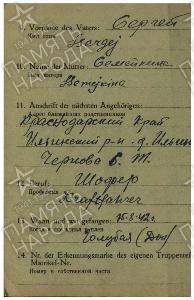 9. Vorname des Vaters: Сергей
Имя отца
Sergej
10. Name der Mutter: Семейкина
Имя матери
Semejkina
11. Anschrift der nächsten Angehörigen:
Адрес ближайших родственников
Краснодарский край
Ильинский р-н. д. Ильин
Чернова Е. Т.
12. Beruf: Шофер
Профессия Kraftfahrer
13. Wann und wo gefangen: 15.8.42г.
Когда и где взят в плен
Голубая (Дон)
14. Nr. der Erkennungsmarke des eigenen Truppenteils
Matrikel-Nr.
Номер в собственной части